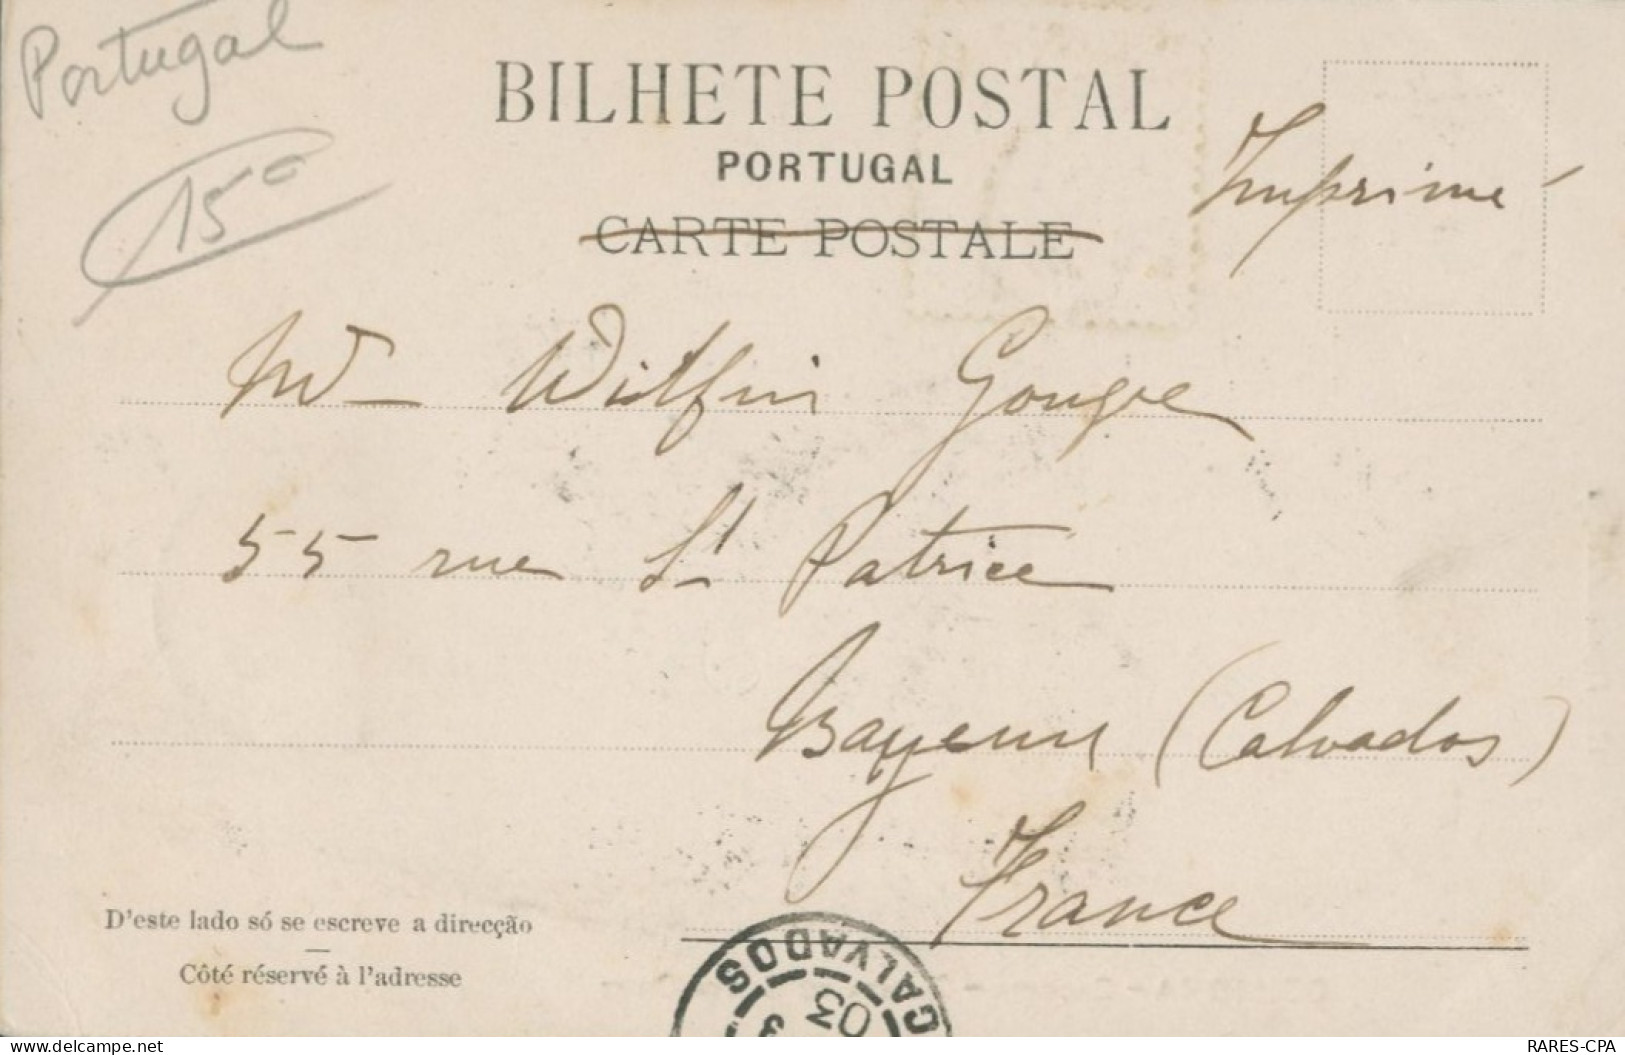 Portugal
15c
BILHETE POSTAL
PORTUGAL
CARTE POSTALE
Imprimé
Mr Wilfrid Gouye
55 rue St Patrice
Bayeux (Calvados)
France
D'este lado só se escreve a direcção
Côté réservé à l'adresse
CALVADOS
03
delcampe.net
RARES-CPA